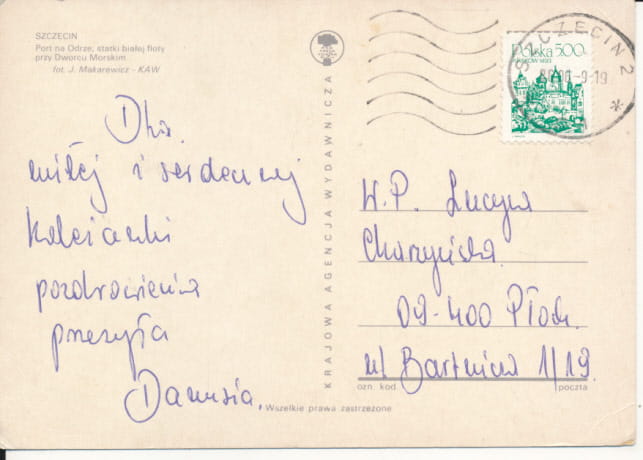 SZCZECIN
Port na Odrze, statki białej floty
przy Dworcu Morskim
fot. J. Makarewicz - KAW
Dla
miłej i serdecznej
Koleżanki
pozdrowienia
przesyła
Danusia.
KRAJOWA AGENCJA WYDAWNICZA
Wszelkie prawa zastrzeżone
Polska 500
KRAKÓW 1493
SZCZECIN 2
W.P. Lucyna
09-400 Płock
ul Bartnicza 1/19.
ozn. kod
poczta